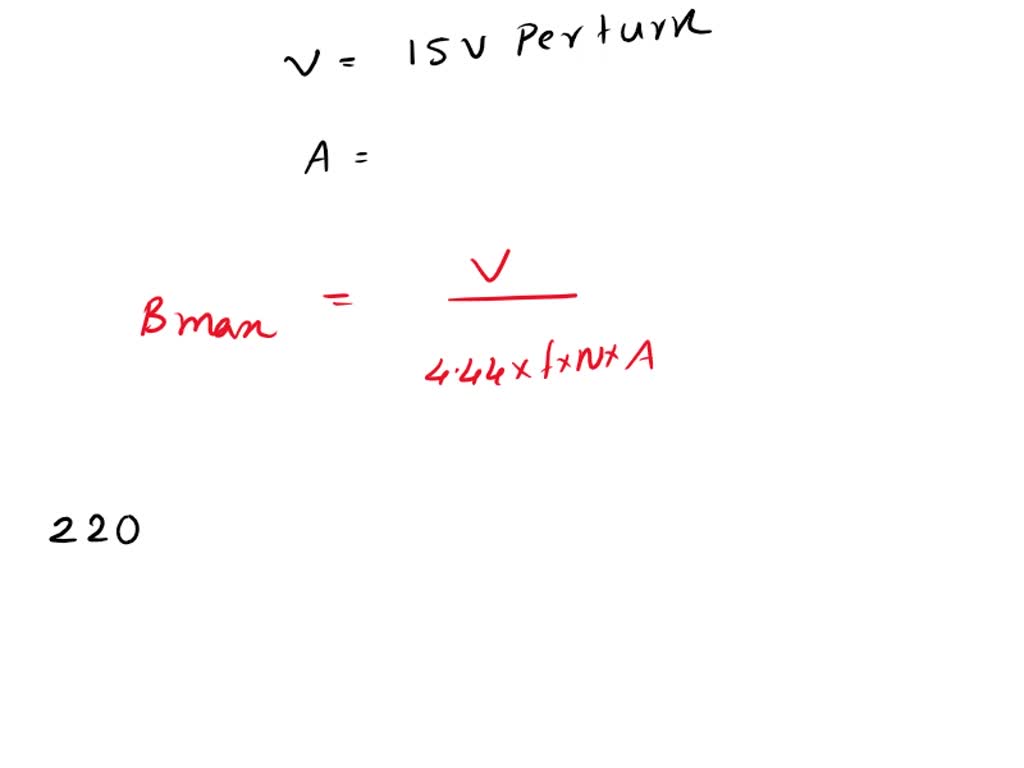 V = 15V Per turn
A =
Bmax = V / 4.44 x f x N x A
220